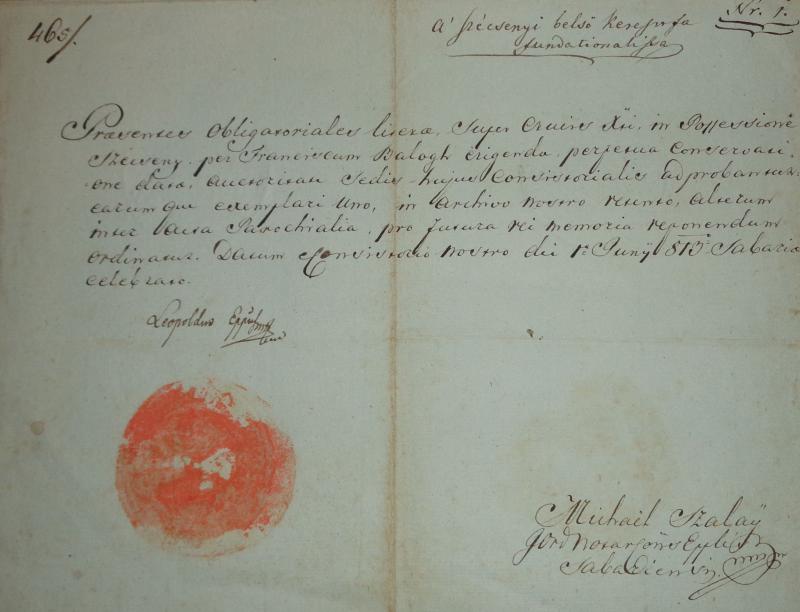 465/.
Nr. 1.
A' szécsenyi belső keresztfa
fundationalissa
Praesentes Obligatoriales literae, Super Crucis Xti, in Possessione
Szécseny, per Franciscum Balogh erigenda, perpetua Conservati-
one datae, auctoritate Sedis hujus Consistorialis adprobantur;
earumque exemplari uno, in Archivo nostro retento, alterum
inter Acta Parochialia, pro futura rei memoria reponendum
ordinatur. Datum e Consistorio nostro die 1a Junÿ 813. Sabariae
celebrato.
Leopoldus Eppus
Michaël Szalaÿ
Notar
Sabariensis